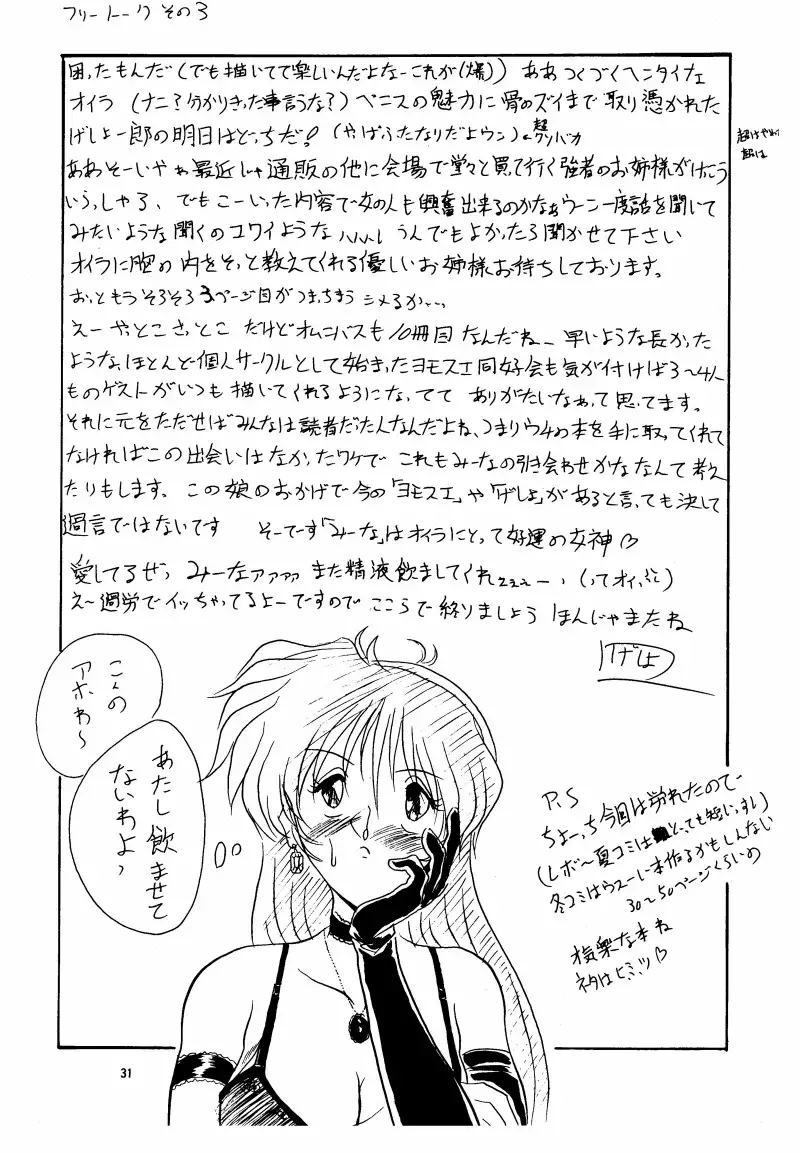 フリートーク その3
困ったもんだ(でも描いてて楽しいんだよなーこれが(爆)) ああつくづくヘンタイナェ
オイラ (ナニ?分かりきった事言うな?) ペニスの魅力に骨のズイまで取り憑かれた
げしょ一郎の明日はどっちだ! (やぱふたなりだよウン)
ああそーいやぁ最近じゃ通販の他に会場で堂々と買って行く強者のお姉様がけっこう
いらっしゃる、でもこーいった内容で女の人も興奮出来るのかなぁウーン一度話を聞いて
みたいような聞くのコワイような、、、、うんでもよかったら聞かせて下さい
オイラに胸の内をそっと教えてくれる優しいお姉様お待ちしております。
おっともうそろそろ3ページ目がつまっちまう シメるか…
えーやっとこさっとこ だけどオムニバスも10冊目なんだねー 早いような長かった
ような、ほとんど個人サークルとして始まったヨモスエ同好会も気が付けば3〜4人
ものゲストがいつも描いてくれるようになってて ありがたいなぁって思ってます。
それに元をただせばみんなは読者だった人なんだよね、つまりウチの本を手に取ってくれて
なければこの出会いはなかったワケで これもみーなの引き会わせかななんて考え
たりもします。この娘のおかげで今の「ヨモスエ」や「げしょ」があると言っても決して
過言ではないです そーでーす「みーな」はオイラにとって好運の女神♡
愛してるぜっ みーなァァァァ また精液飲ましてくれェェェー、(ってオイっ)
え〜過労でイッちゃってるよーですのでここらで終りましょう ほんじゃまたね
げしょ
こんの
アホわ〜
あたし飲ませて
ないわよっ
P.S
ちょーっち今回は労れたので
(レボ〜夏コミはとっても短いっすし)
冬コミはウスーい本作るかもしんない
30〜50ページくらいの
気楽な本ね
ネタはヒミツ♡
31